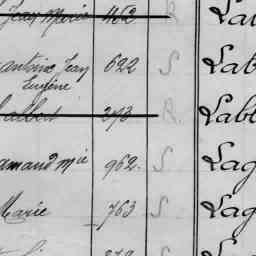 Jean Marie 462 R Lab
antoine Jean 622 S Lab
Eugène
albert 373 R Labl
amand Mie 962. S Lag
Marie 763 S Lag